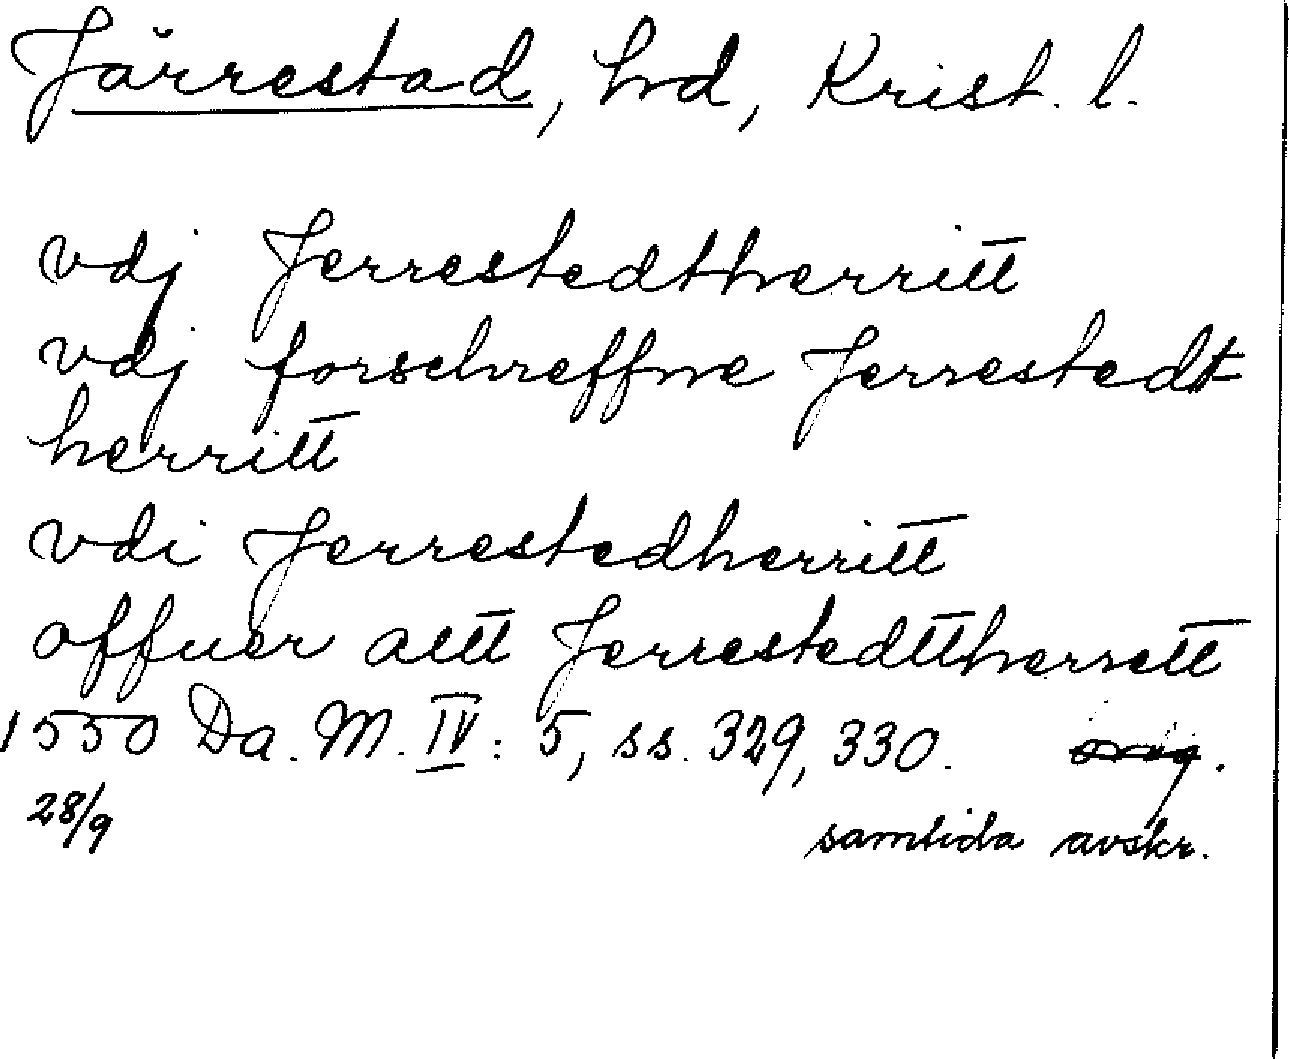 Järrestad, hd, Krist. l.
vdj Jerrestedtherritt
vdj forschreffne Jerrestedt-
herritt
vdi Jerrestedherritt
offuer altt Jerrestedttherrett
1550 Da. M. IV: 5, ss. 329, 330. orig.
28/9 samtida avskr.